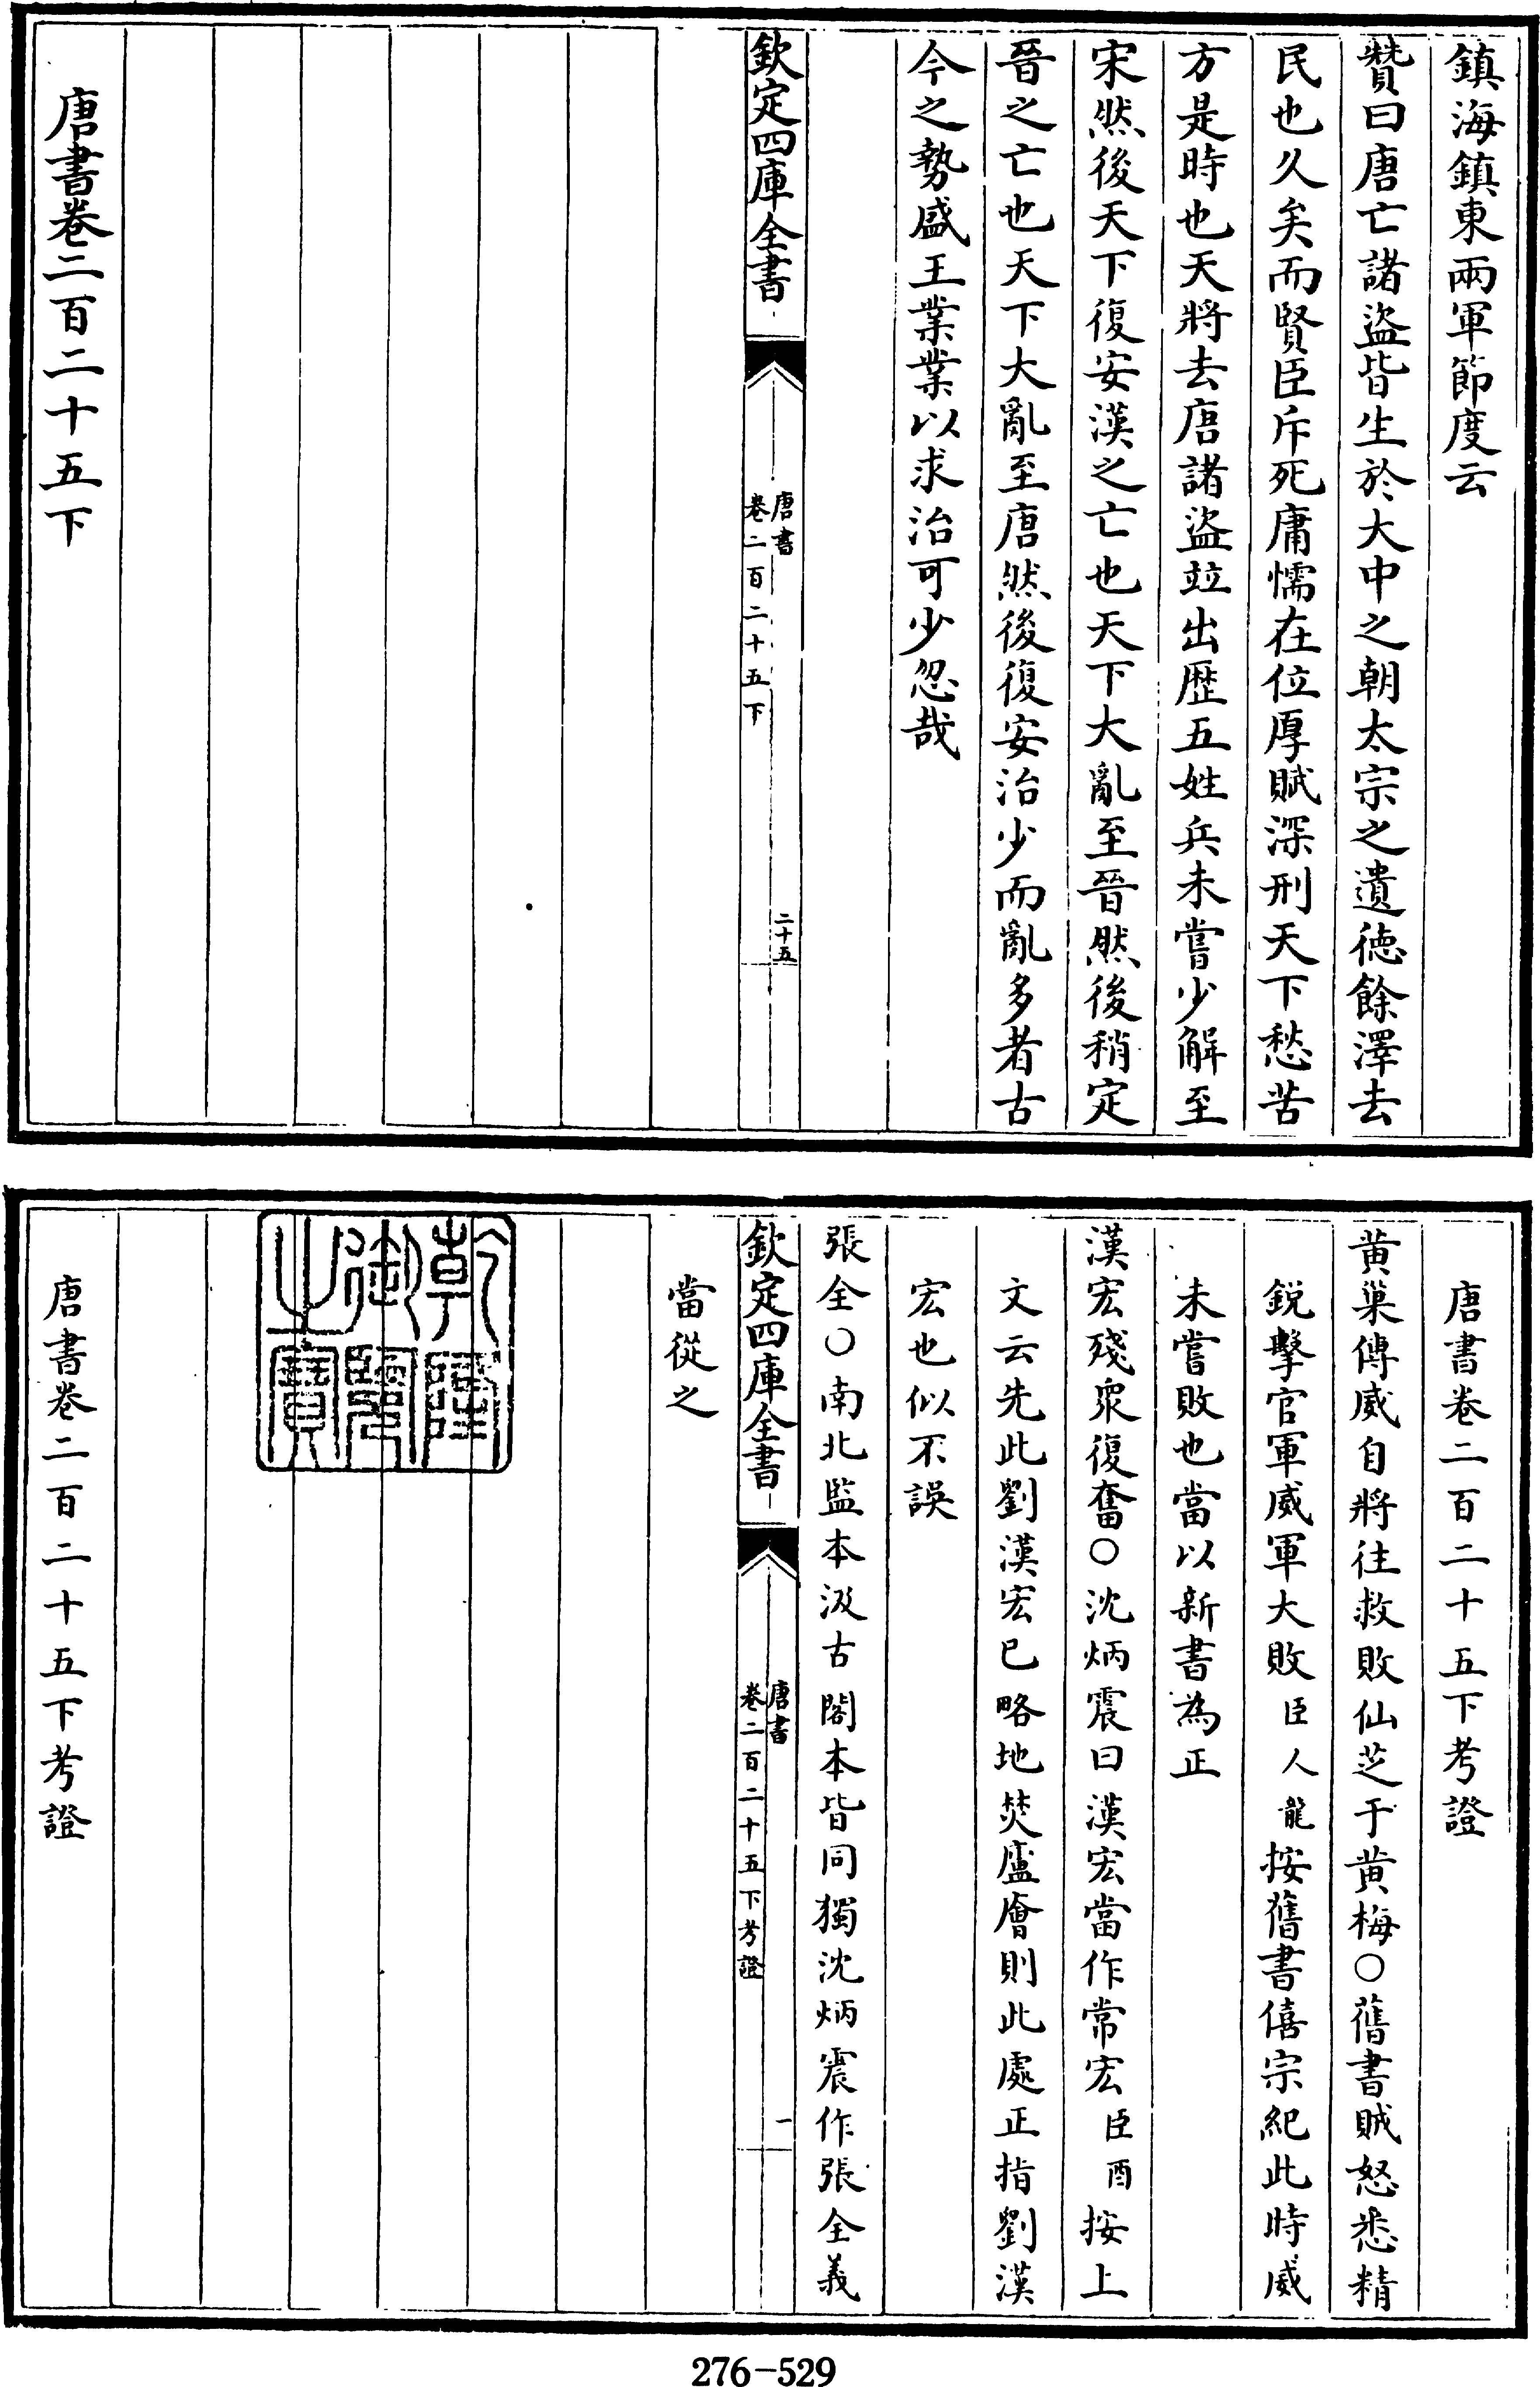 鎮海鎮東兩軍節度云
贊曰唐亡諸盜皆生於大中之朝太宗之遺徳餘澤去
民也久矣而賢臣斥死庸懦在位厚賦深刑天下愁苦
方是時也天將去唐諸盜竝出歴五姓兵未嘗少解至
宋然後天下復安漢之亡也天下大亂至晉然後稍定
晉之亡也天下大亂至唐然後復安治少而亂多者古
今之勢盛王業業以求治可少忽哉
欽定四庫全書
唐書
卷二百二十五下
二十五
唐書卷二百二十五下
唐書卷二百二十五下考證
黄巢傳威自將往救敗仙芝于黄梅○舊書賊怒悉精
鋭擊官軍威軍大敗臣人龍按舊書僖宗紀此時威
未嘗敗也當以新書為正
漢宏殘衆復奮○沈炳震曰漢宏當作常宏臣酉按上
文云先此劉漢宏已略地焚廬廥則此處正指劉漢
宏也似不誤
張全○南北監本汲古閣本皆同獨沈炳震作張全義
欽定四庫全書
唐書
卷二百二十五下考證
一
當從之
乾隆御覽之寶
唐書卷二百二十五下考證
276-529